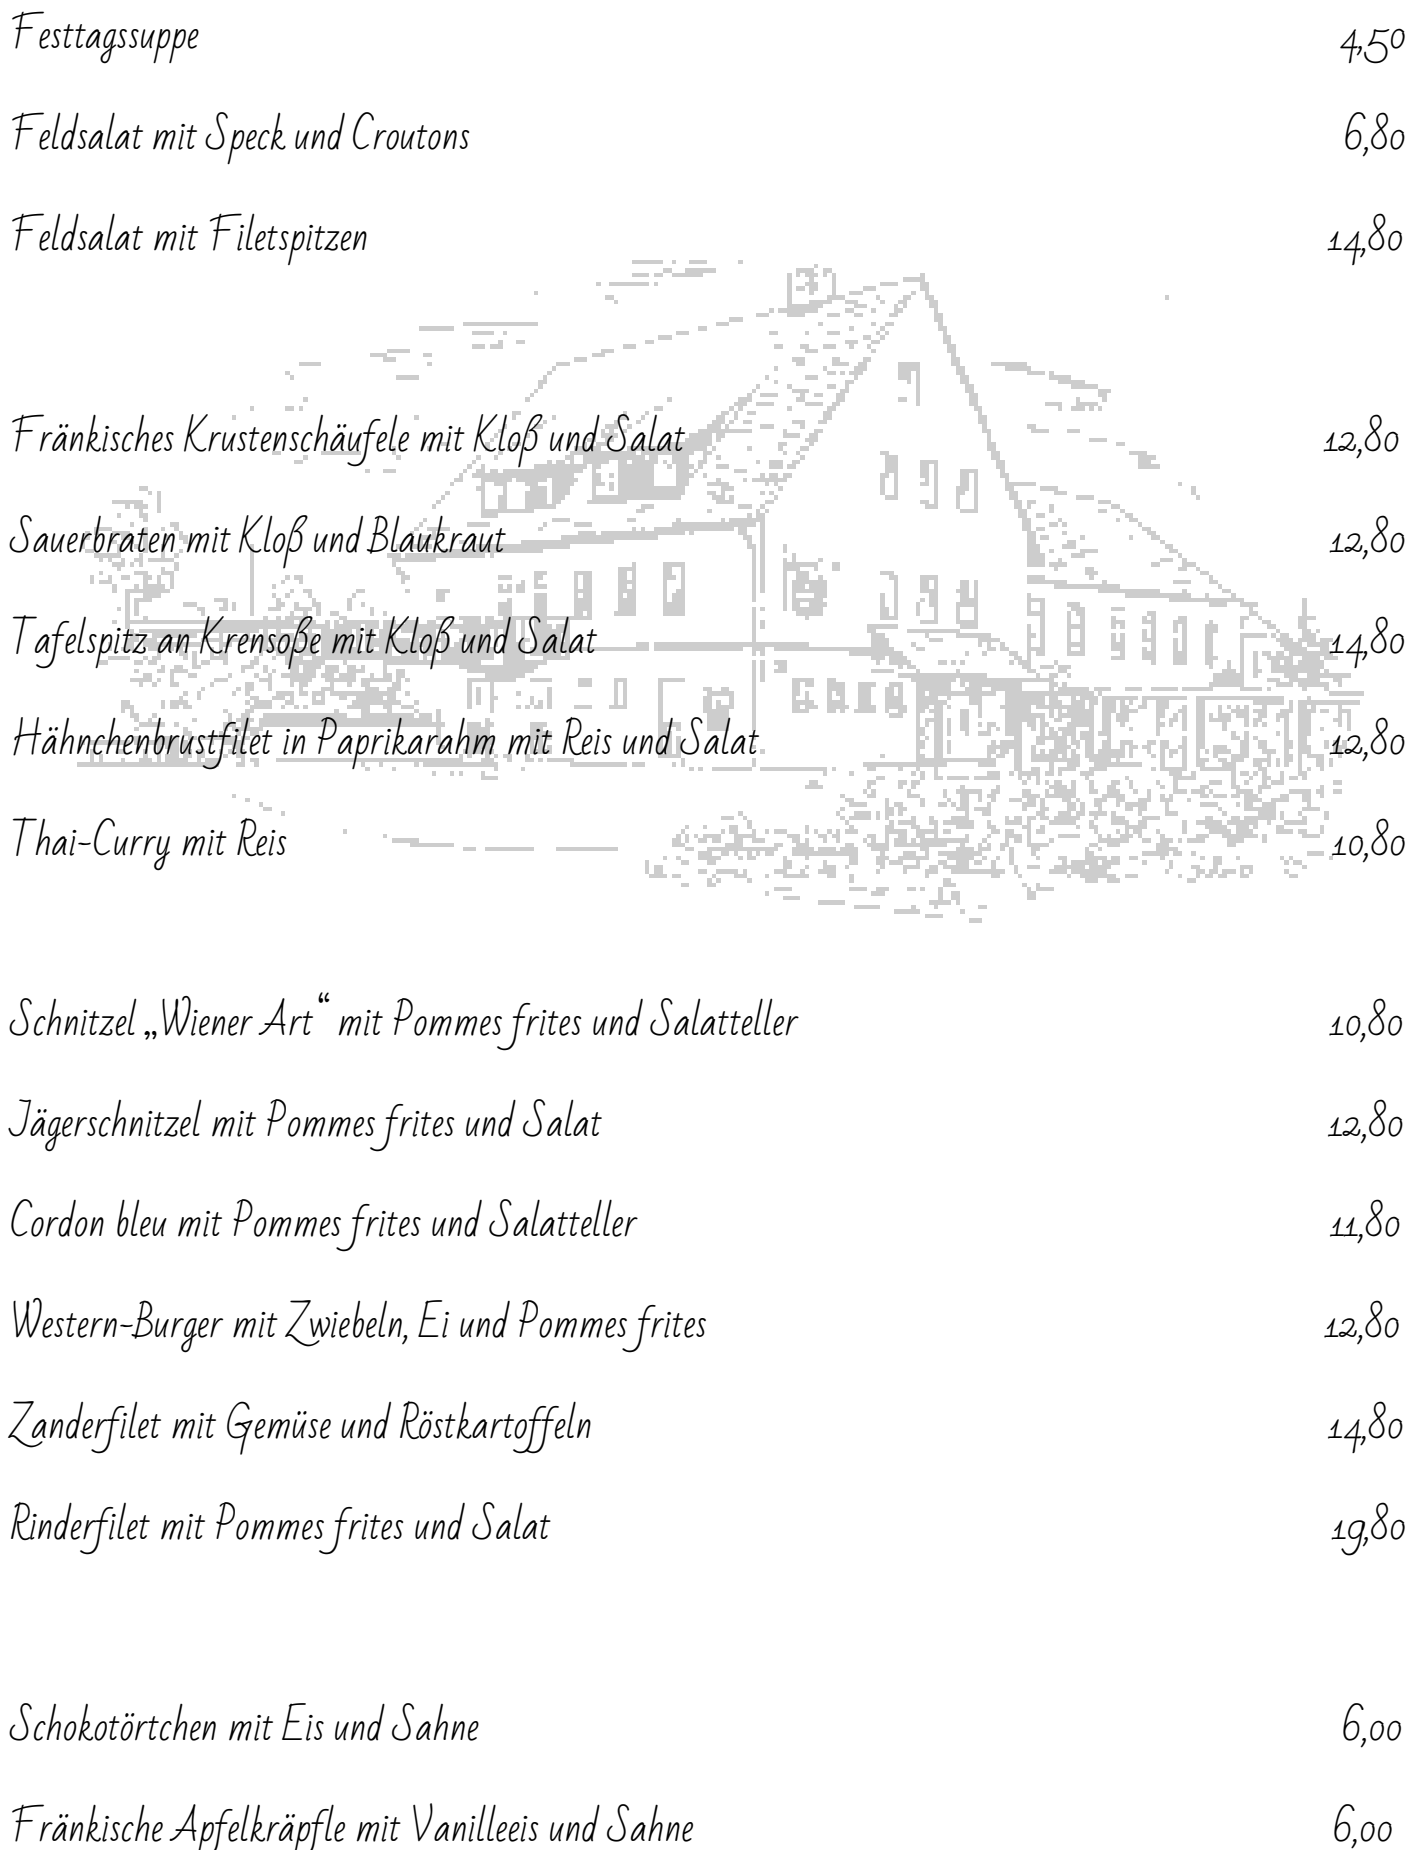 Festtagssuppe 4,50
Feldsalat mit Speck und Croutons 6,80
Feldsalat mit Filetspitzen 14,80
Fränkisches Krustenschäufele mit Kloß und Salat 12,80
Sauerbraten mit Kloß und Blaukraut 12,80
Tafelspitz an Krensoße mit Kloß und Salat 14,80
Hähnchenbrustfilet in Paprikarahm mit Reis und Salat 12,80
Thai-Curry mit Reis 10,80
Schnitzel „Wiener Art“ mit Pommes frites und Salatteller 10,80
Jägerschnitzel mit Pommes frites und Salat 12,80
Cordon bleu mit Pommes frites und Salatteller 11,80
Western-Burger mit Zwiebeln, Ei und Pommes frites 12,80
Zanderfilet mit Gemüse und Röstkartoffeln 14,80
Rinderfilet mit Pommes frites und Salat 19,80
Schokotörtchen mit Eis und Sahne 6,00
Fränkische Apfelkräpfle mit Vanilleeis und Sahne 6,00